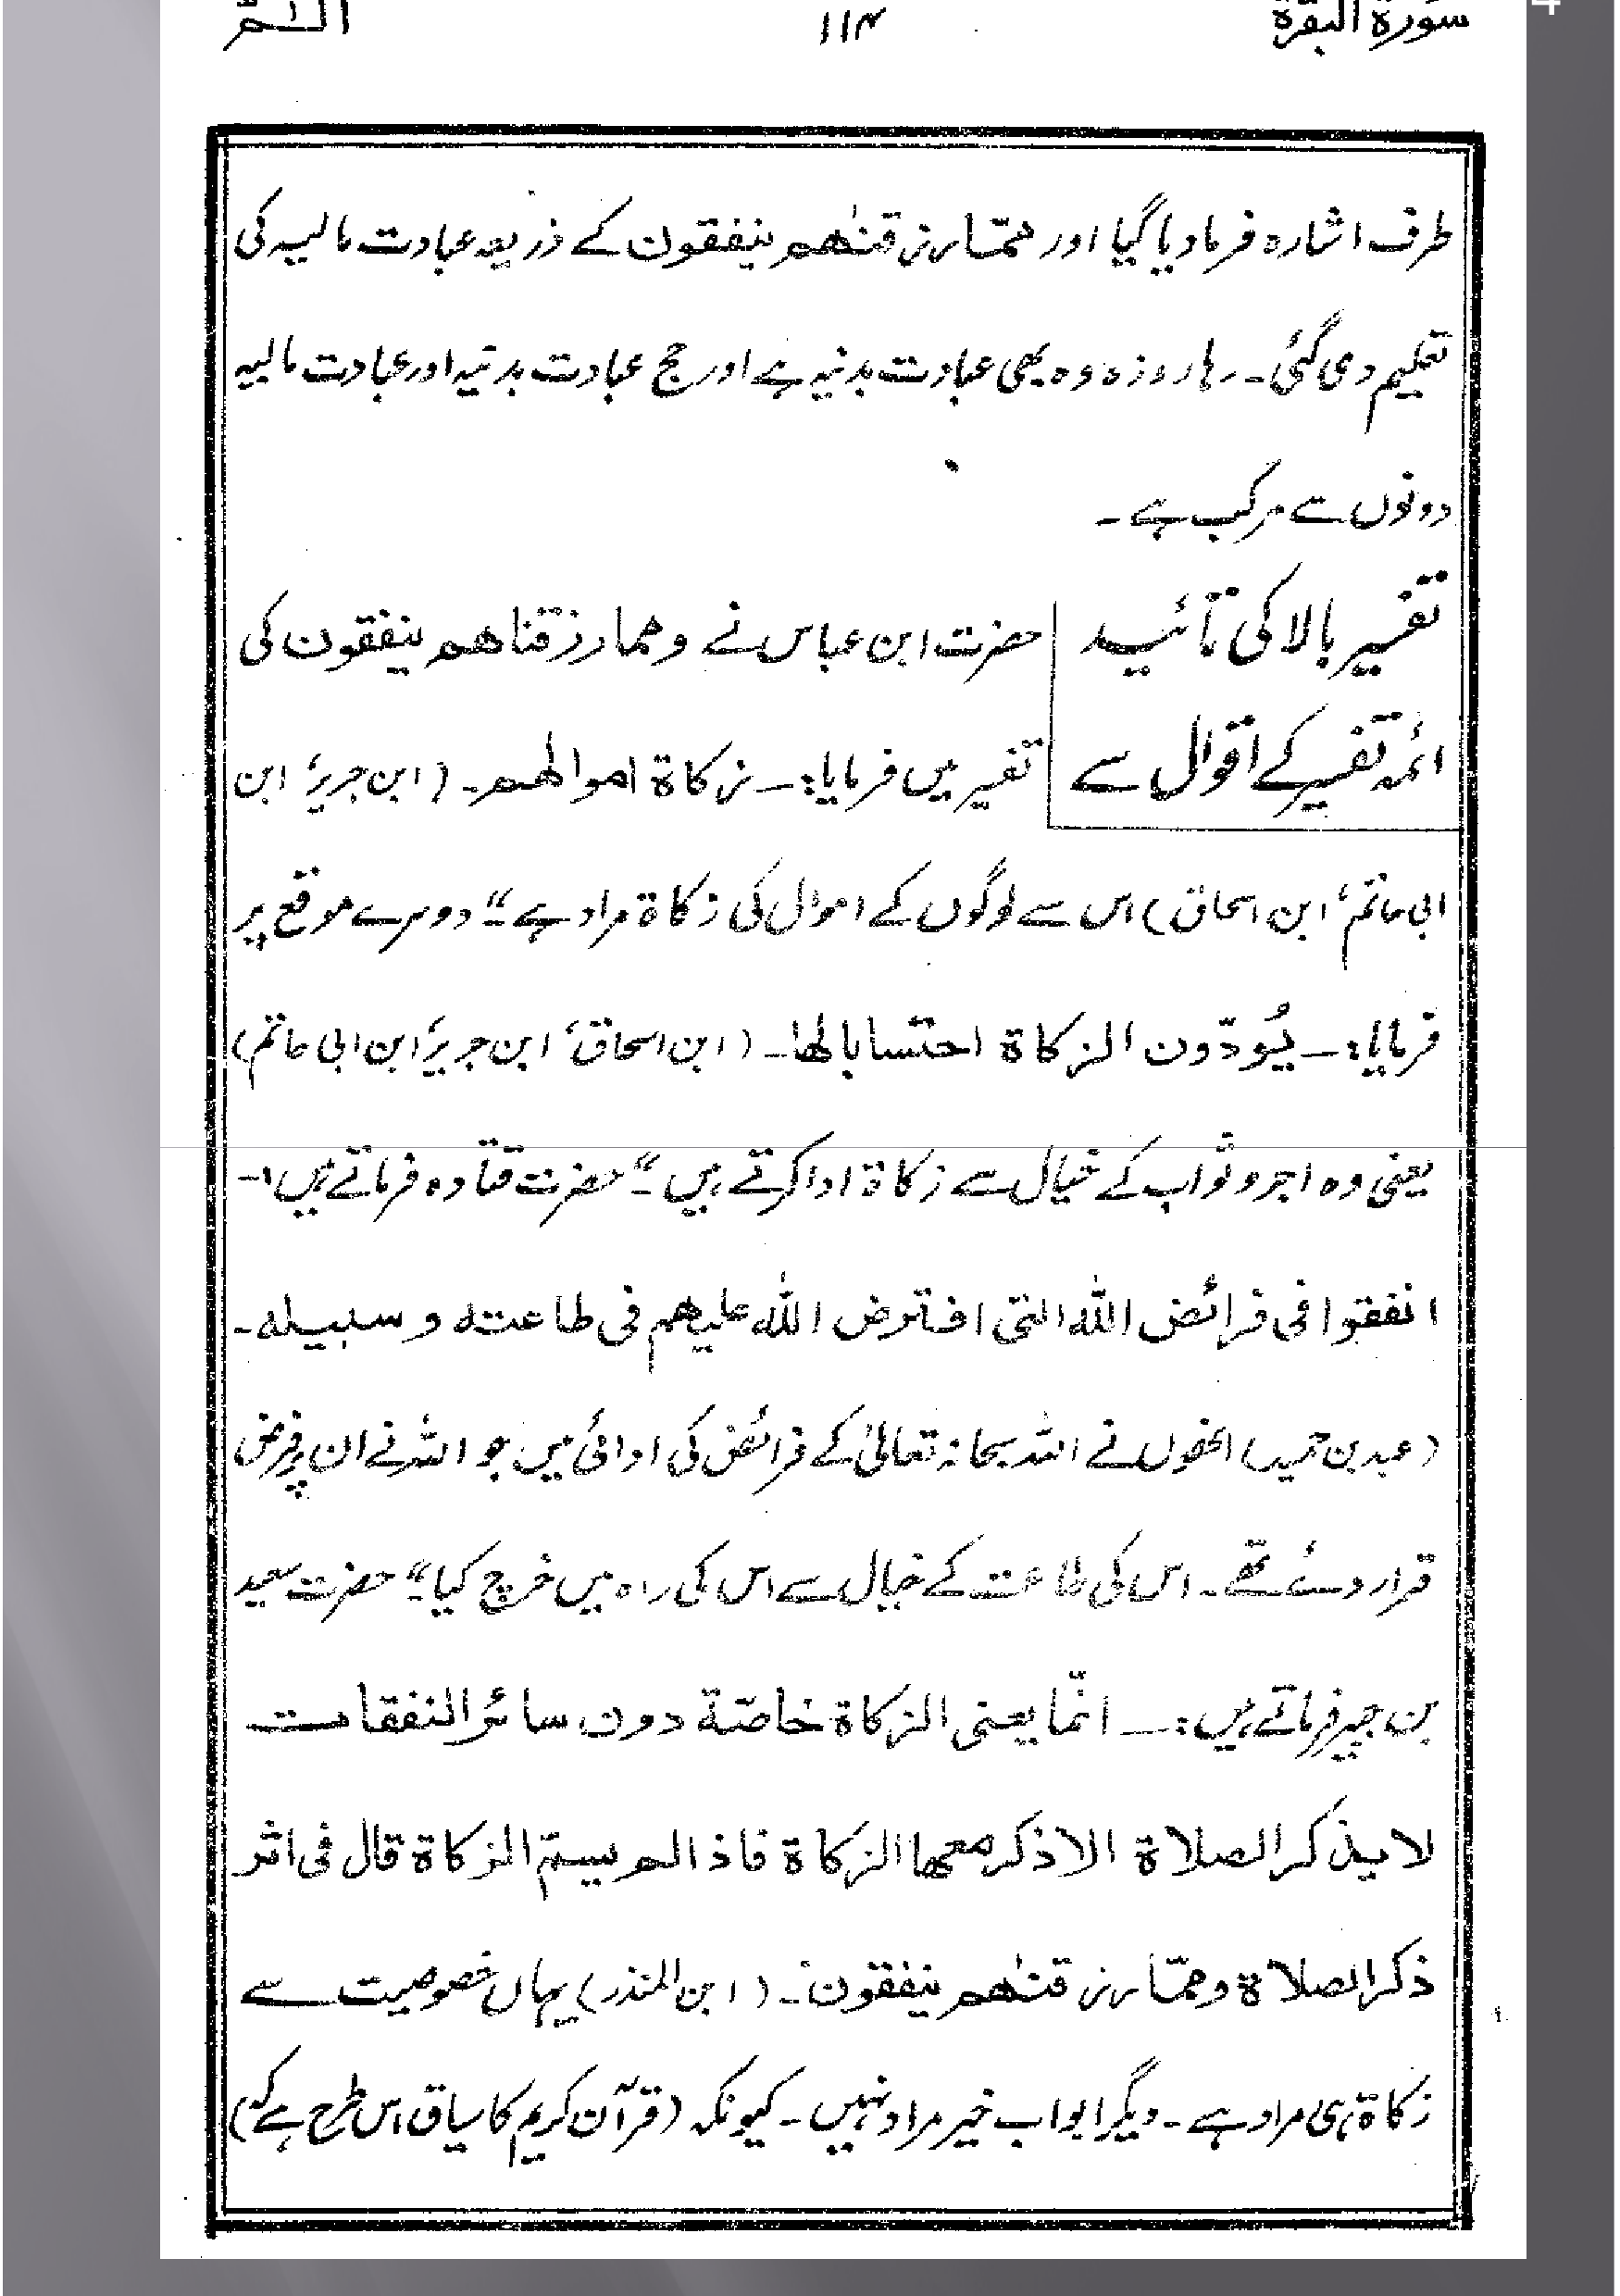 سورة البقرة ۱۱۴ الٓـمّٓ
4
طرف اشارہ فرما دیا گیا اور ممّا رزقنٰهم ینفقون کے ذریعہ عبادت مالیہ کی
تعلیم دی گئی۔ رہا روزہ وہ بھی عبادت بدنیہ ہے اور حج عبادت بدنیہ اور عبادت مالیہ
دونوں سے مرکب ہے۔
تفسیر بالا کی تائید
ائمہ تفسیر کے اقوال سے
حضرت ابن عباس نے ومما رزقناهم ینفقون کی
تفسیر میں فرمایا:۔ زکاة اموالهم۔ (ابن جریر، ابن
ابی حاتم، ابن اسحاق) اس سے لوگوں کے اموال کی زکاة مراد ہے“۔ دوسرے موقع پر
فرمایا:۔ یُودّون الزکاة احتسابا لها۔ (ابن اسحاق، ابن جریر، ابن ابی حاتم)
یعنی وہ اجر و ثواب کے خیال سے زکاة ادا کرتے ہیں“۔ حضرت قتادہ فرماتے ہیں:۔
انفقوا فی فرائض الله التی افترض الله علیهم فی طاعته و سبیله۔
(عبد بن حمید) انھوں نے اللہ سبحانہ تعالیٰ کے فرائض کی ادائی میں جو اللہ نے ان پر فرض
قرار دئے تھے۔ اس کی طاعت کے خیال سے اس کی راہ میں خرچ کیا“۔ حضرت سعید
بن جبیر فرماتے ہیں:۔ انّما یعنی الزکاة خاصّة دون سائر النفقات
لا یذکر الصلاة الا ذکر معها الزکاة فاذا لم یسمّ الزکاة قال فی اثر
ذکر الصلاة وممّا رزقنٰهم ینفقون۔ (ابن المنذر) یہاں خصوصیت سے
زکاة ہی مراد ہے۔ دیگر ابواب خیر مراد نہیں۔ کیونکہ (قرآن کریم کا سیاق اس طرح ہے کہ)